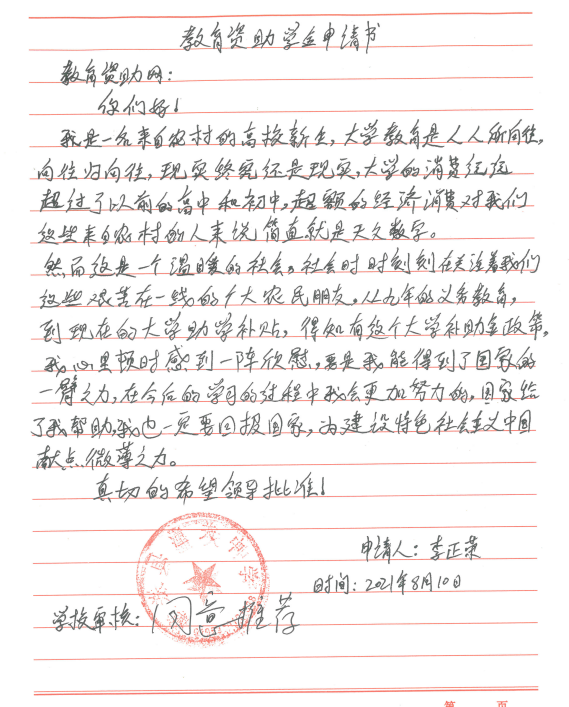 教育资助学金申请书
教育资助网：
你们好！
我是一名来自农村的高校新生，大学教育是人人所向往，
向往归向往，现实终究还是现实，大学的消费远远
超过了以前的高中和初中，超额的经济消费对我们
这些来自农村的人来说简直就是天文数字。
然而这是一个温暖的社会。社会时时刻刻在关注着我们
这些艰苦在一线的广大农民朋友。从九年的义务教育，
到现在的大学助学补贴，得知有这个大学补助金政策，
我心里顿时感到一阵欣慰，要是我能得到了国家的
一臂之力，在今后的学习的过程中我会更加努力的，国家给
了我帮助，我也一定要回报国家，为建设特色社会主义中国
献点微薄之力。
真切的希望领导批准！
申请人：李正荣
时间：2021年8月10日
学校审核：同意推荐
第 页